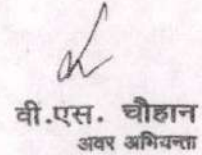 वी.एस. चौहान
अवर अभियन्ता